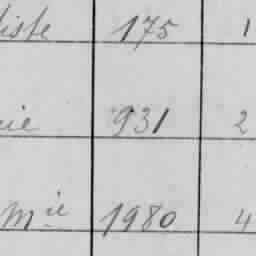 iste 175 1
ie 931 2
Mie 1980 4